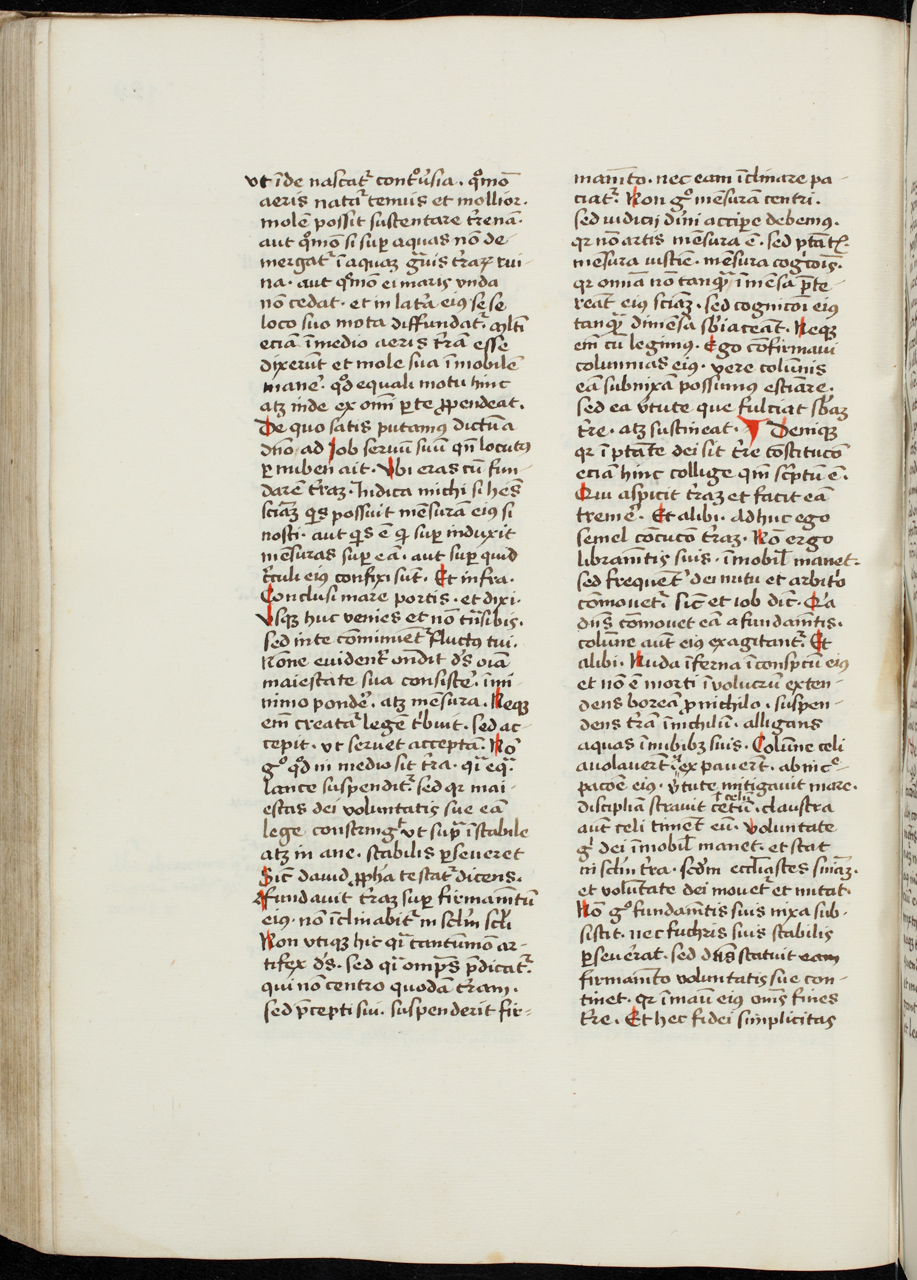 vt īde nascat᷑ contͦūsia · qͦmō
aeris natᷓ tenuis et mollior ·
molē possit sustentare t᷑renā ·
aut qͦmō si sup aquas nō de-
mergat᷑ ī aquaꝫ gͣuis t᷑raꝝ rui-
na · aut qͦmō ei maris vnda
nō cedat · et in latᷓa eiꝰ se se
loco suo mota diffundat᷑ · Mltī
eciā ī medio aeris t᷑rā esse
dixerunt et mole sua īmobilē
mane᷑ · qd̛ equali motu hinc
atꝫ inde ex omī ꝑte ꝓpendeat ·
De quo satis putamꝰ dictū a
dn̄o ad Job seruū suū qn̄ locutꝰ
ꝑ nubē ait · Vbi eras cū fun-
darē t᷑raꝫ · Indica michi si hēs
sciāꝫ qͥs possuit mēsurā eiꝰ si
nosti · aut qͥs ē qͥ sup induxit
mēsuras sup eā · aut sup quid
t᷑culi eiꝰ confixi sūt · Et infra ·
Conclusi mare portis · et dixi ·
Vsqꝫ huc venies et nō tn̄sibis ·
sed in te cōminuēt᷑ fluctꝰ tui ·
Nōne euident᷑ on̄dit dꝰs oīa
maiestate sua consiste᷑ · īmi
nimo ponde᷑ · atꝫ mēsura · Neqꝫ
em̄ creatᷓ legē t᷑buit · sed ac-
cepit · vt seruet acceptā · Nō
gͦ qd̛ in medio sit t᷑ra · qͣi eqͣ
lance suspendit᷑ sed qr mai-
estas dei voluntatis sue eā
lege constringͭ vt supͣ īstabile
atꝫ in ane · stabilis ꝑseueret
Sic̄ dauid ꝓph̄a testat᷑ dicens ·
Fundauit t᷑raꝫ sup firmamētū
eiꝰ · nō īclinabit᷑ in sc̄lm̄ sc̄li
Non vtiqꝫ hic qͣi tantūmō ar-
tifex dꝰs · sed qͣi omp̄s p̄dicat᷑ ·
qui nō centro quodā t᷑ram ·
sed p̄cepti sui · suspenderit fir-
mam̄to · nec eam īclinare pa-
ciat᷑ · Non gͦ mēsurā centri ·
sed iudicij diīni accipe debemꝰ ·
qr nō artis mēsura ē · sed ptātꝭ ·
mēsura iusticie · mēsura cogͨcoīs ·
qr omīa nō tanqͣꝫ īmēsa p̄te-
reāt eiꝰ sciāꝫ · sed cognicōi eiꝰ
tanqͣꝫ dimēsa sb̄iaceāt · Neqꝫ
em̄ cū legimꝰ · Ego cōfirmaui
columnas eiꝰ · vere colūnis
eā subnixā possumus estiāre ·
sed ea v᷑tute que fulciat sb̄aꝫ
t᷑re · atꝫ sustineat · ¶ Deniqꝫ
qr ī ptāte dei sit t᷑re cōstitucō
eciā hinc collige qm̄ sc̄ptū ē ·
Qui aspicit t᷑raꝫ et facit eā
treme᷑ · Et alibi · Adhuc ego
semel cōcuco t᷑raꝫ · Nō ergo
libram̄tis suis · īmobil̄ manet ·
sed frequent᷑ dei nutu et arbitͦo
cōmouet᷑ · sic̄ et iob dic̄ · Qͣa
dn̄s cōmouet eā a fundam̄tis ·
colūne aūt eiꝰ exagitant᷑ · Et
alibi · Nuda īferna ī consp̄tū eiꝰ
et nō ē morti īuolucrū exten-
dens boreā ꝓ nichilo · suspen-
dens t᷑rā ī nichilū · alligans
aquas ī nubibꝫ suis · Colūne celi
auolauer̄t · ex pauer̄t · ab inc̄-
pacōe eiꝰ · v᷑tute mitigauit mare ·
disciplīa strauit cētū · claustra
aūt celi timēt eū · Voluntate
gͥ dei īmobil̄ manet · et stat
in sc̄lm̄ t᷑ra · sc̄dm̄ eccl̄iastes sn̄iāꝫ ·
et volūtate dei mouet᷑ et nutat ·
Nō gͦ fundam̄tis suis nixa sub-
sistit · nec fuchris suis stabilis
ꝑseu᷑at · sed dn̄s statuit eam
firmam̄to voluntatis sue con-
tinet · qr ī manū eiꝰ om̄s fines
t᷑re · Et hec fidei simplicitas